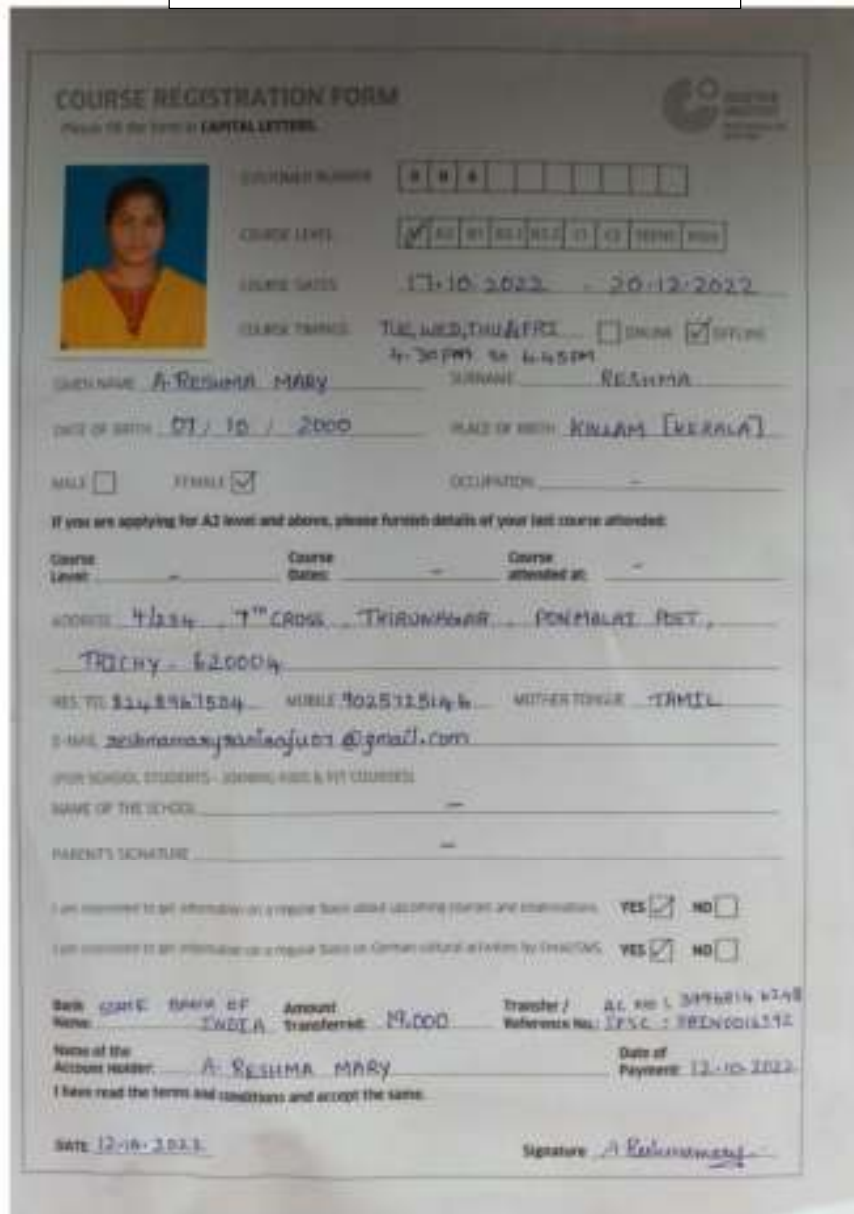 COURSE REGISTRATION FORM
Please fill the form in CAPITAL LETTERS.
GOETHE INSTITUT
CUSTOMER NUMBER
COURSE LEVEL A2 B1 B2.1 B2.2 C1 C2 TEENS KIDS
COURSE DATES 17.10.2022 - 20.12.2022
COURSE TIMINGS TUE, WED, THU & FRI ONLINE OFFLINE
4.30 PM to 6.45 PM
GIVEN NAME A. RESHMA MARY SURNAME RESHMA
DATE OF BIRTH 07/10/2000 PLACE OF BIRTH [KERALA]
MALE FEMALE OCCUPATION -
If you are applying for A2 level and above, please furnish details of your last course attended:
Course Level: - Course Dates: - Course attended at: -
ADDRESS 7TH CROSS, PONMALAI POST,
TRICHY - 620004
RES. TEL MOBILE MOTHER TONGUE TAMIL
E-MAIL @gmail.com
(FOR SCHOOL STUDENTS - JOINING KIDS & COURSES)
NAME OF THE SCHOOL -
PARENT'S SIGNATURE -
I am interested to get information on a regular basis about upcoming courses and examinations. YES NO
I am interested to get information on a regular basis on German cultural activities by Email/SMS. YES NO
Bank Name: STATE BANK OF INDIA Amount Transferred: 19,000 Transfer / Reference No.:
Name of the Account Holder: A. RESHMA MARY Date of Payment: 12-10-2022
I have read the terms and conditions and accept the same.
DATE 12-10-2022 Signature A Reshmamary